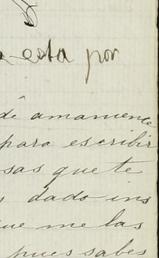 esta por
de amanence
para escribir
sas que te
dado ins
ue me las
pues sabes